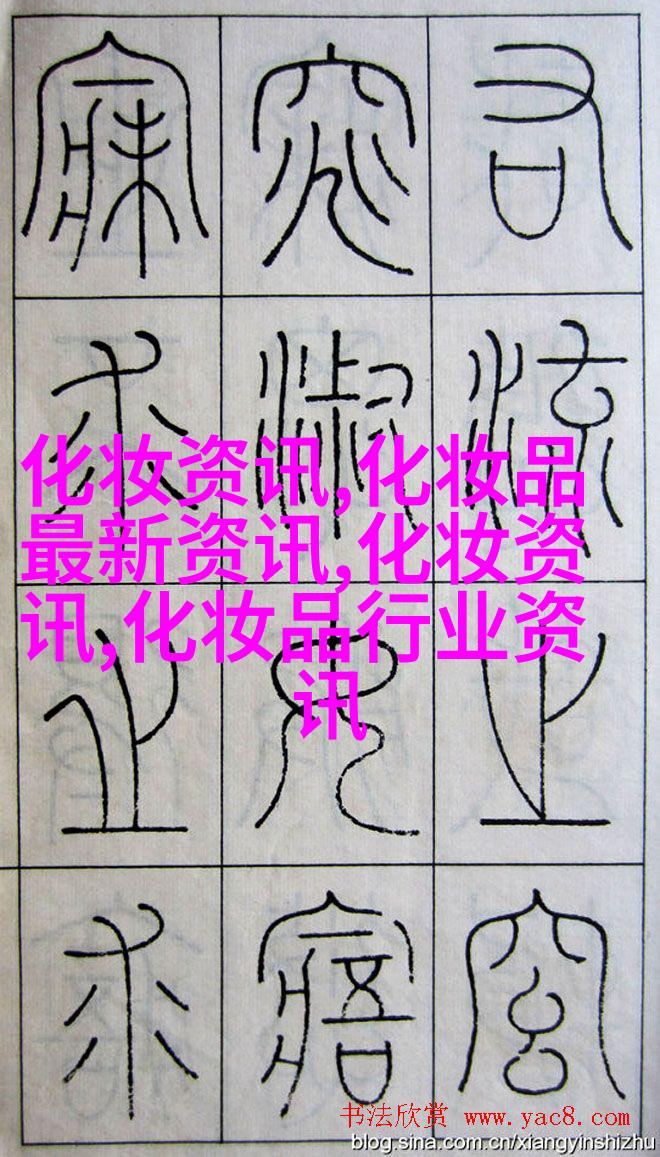 右流之窈
窕淑女寤
寐求之求
化妆资讯,化妆品
最新资讯,化妆资
讯,化妆品行业资
讯
书法欣赏 www.yac8.com
blog.sina.com.cn/xiangyinshizhu